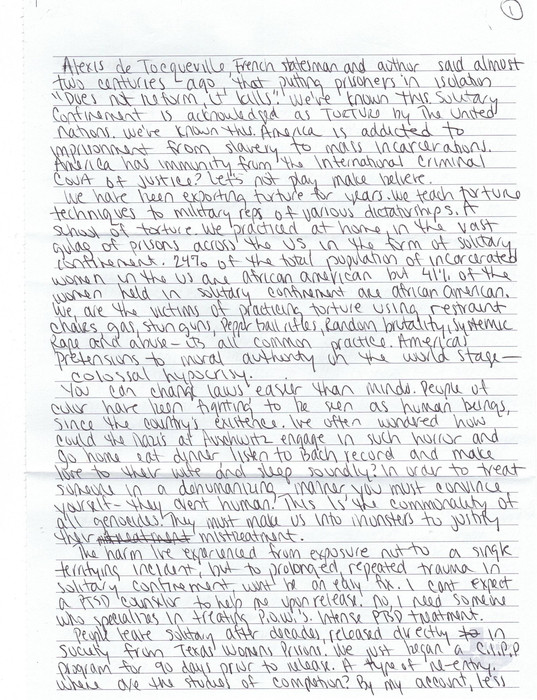 1
Alexis de Tocqueville, French statesman and author said almost
two centuries ago that putting prisoners in isolation
"Does not reform, it kills". We've known this. Solitary
Confinement is acknowledged as TORTURE by the United
Nations. We've known this. America is addicted to
imprisonment from slavery to mass incarcerations.
America has immunity from the International Criminal
Court of justice? Let's not play make believe.
We have been exporting torture for years. We teach torture
techniques to military reps of various dictatorships. A
school of torture. We practiced at home, in the vast
gulag of prisons across the US in the form of solitary
confinement. 24% of the total population of incarcerated
women in the US are african american but 41% of the
women held in solitary confinement are african american.
We are the victims of practicing torture using restraint
chairs, gas, stun guns, Pepper ball rifles, Random brutality, Systemic
Rape and abuse - its all common practice. Americas
Pretensions to moral authority on the world stage -
colossal hypocrisy.
You can change laws easier than minds. People of
color have been fighting to be seen as human beings,
since the country's existence. Ive often wondered how
could the Nazis at Auschwitz engage in such horror and
go home eat dinner listen to Bach record and make
love to their wife and sleep soundly? In order to treat
someone in a dehumanizing manner you must convince
yourself - they arent human. This is the commonality of
all genocides. They must make us into monsters to justify
their mistreatment.
The harm Ive experienced from exposure not to a single
terrifying incident, but to prolonged, repeated trauma in
solitary confinement wont be an easy fix. I cant expect
a PTSD counselor to help me upon release. No, I need someone
who specializes in treating P.O.W.'s. Intense PTSD treatment.
People leave solitary after decades, released directly in
society from Texas Womens Prisons. We just began a C.I.P.P
program for 90 days prior to release. A type of re-entry.
Where are the studies of completion? By my account, less